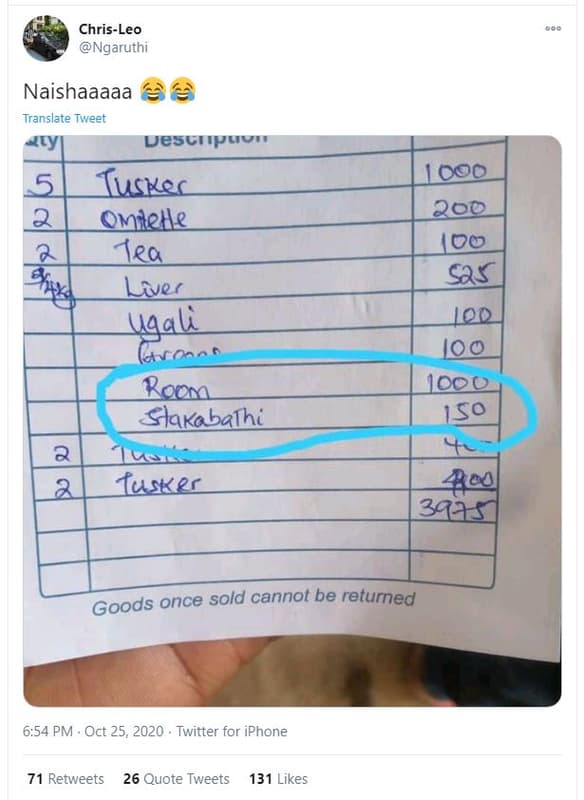 Chris-Leo
@Ngaruthi
Naishaaaaa 😂😂
Translate Tweet
Qty Description
5 Tusker 1000
2 Omlette 200
2 Tea 100
Liver 525
Ugali 100
Greens 100
Room 1000
Stakabathi 150
2 Tusker 400
2 Tusker 400
3975
Goods once sold cannot be returned
6:54 PM · Oct 25, 2020 · Twitter for iPhone
71 Retweets 26 Quote Tweets 131 Likes